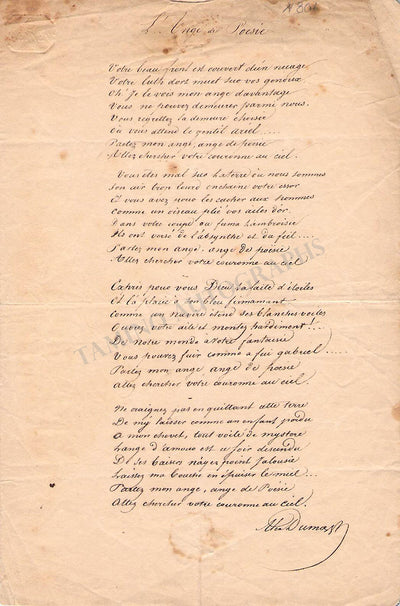 L'Ange de Poésie
Votre beau front est couvert d'un nuage
Votre luth dort muet sur vos genoux
Oh! Je le vois mon ange davantage
Vous ne pouvez demeurer parmi nous.
Vous regrettez la demeure choisie
Où vous attend le gentil ariel ....
Partez mon ange, ange de poesie
Allez chercher votre couronne au ciel.
Vous êtes mal sur la terre où nous sommes
Son air trop lourd enchaine votre essor
et vous avez pour les cacher aux hommes
Comme un oiseau plié vos ailes d'or.
Dans votre coupe où fuma l'ambroisie
Ils ont versé de l'absynthe et du fiel ....
Partez mon ange. ange de poésie
Allez chercher votre couronne au ciel
Exprès pour vous Dieu la faite d'étoiles
Et la placée a son bleu firmamant
Comme un navire étend ses blanches voiles
Ouvrez votre aile et montez hardiment!
De notre monde a votre fantaisie
Vous pouvez fuir comme a fui gabriel .....
Partez mon ange ange de poesie
Allez chercher votre couronne au ciel.
Ne craignez pas en quittant cette terre
De my laisser comme un enfant perdu
A mon chevet, tout voilé de mystere
L'ange d'amour est ce soir descendu
De ses baisers n'ayez point jalousie
Laissez ma bouche en épuiser le miel ....
Partez mon ange, ange de Poésie
Allez chercher votre couronne au ciel.
Alex Dumas
TAMINO AUTOGRAPHS